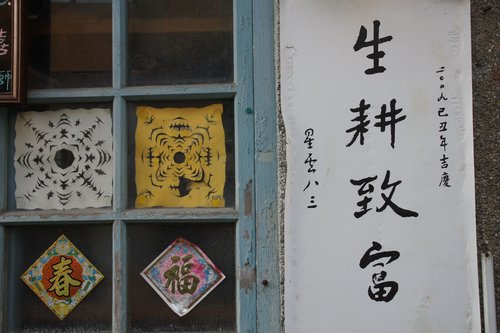 二〇〇九己丑年吉慶
生耕致富
星雲八三
春
福
喜
師